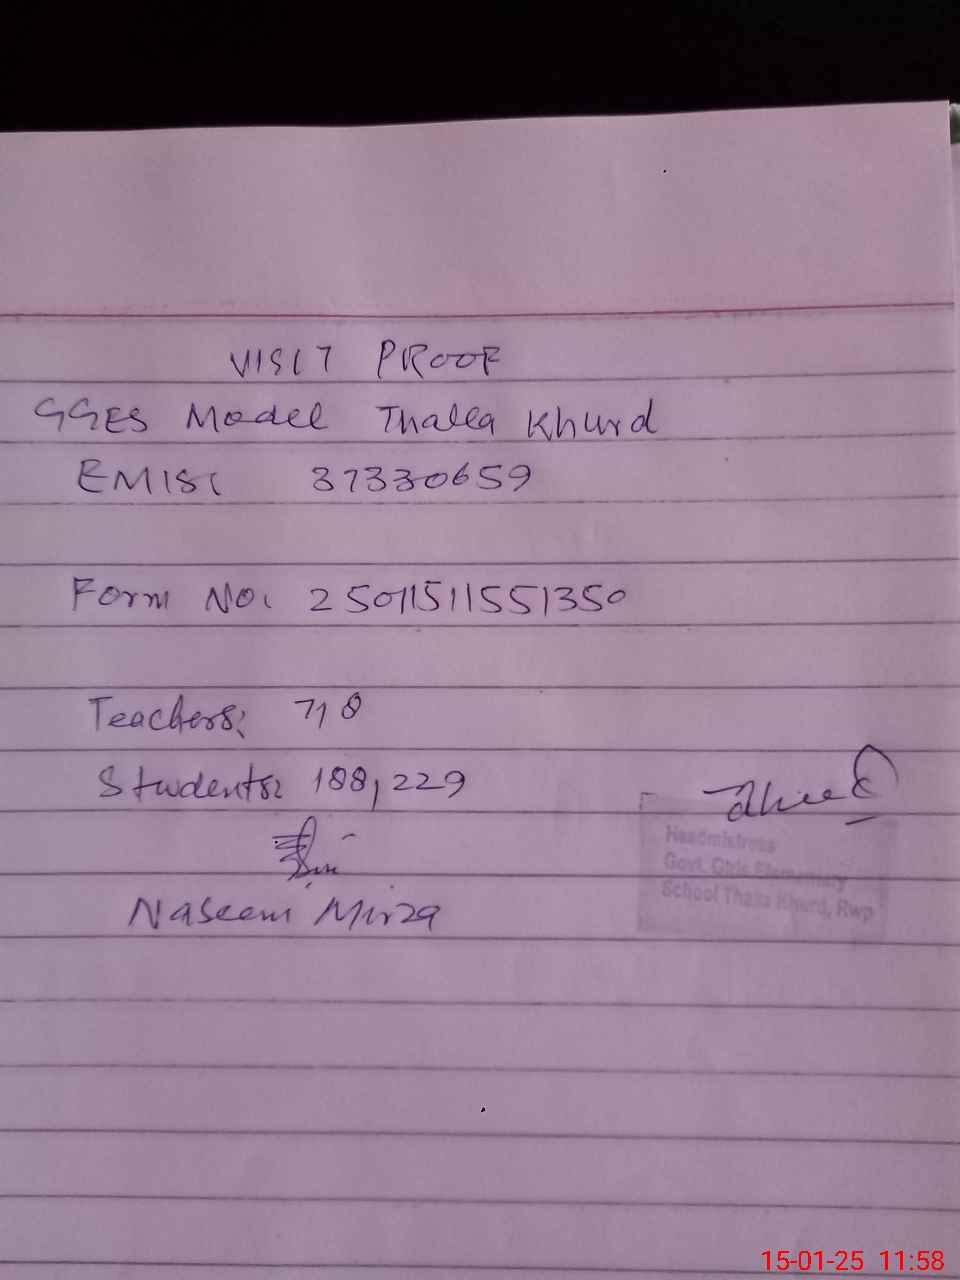 VISIT PROOF
GGES Model Thalla Khurd
EMIS: 37330659
Form No: 25011511551350
Teachers: 7, 8
Students: 188, 229
Naseem Mirza
Headmistress
Govt. Girls Elementary
School Thalla Khurd, Rwp
15-01-25 11:58